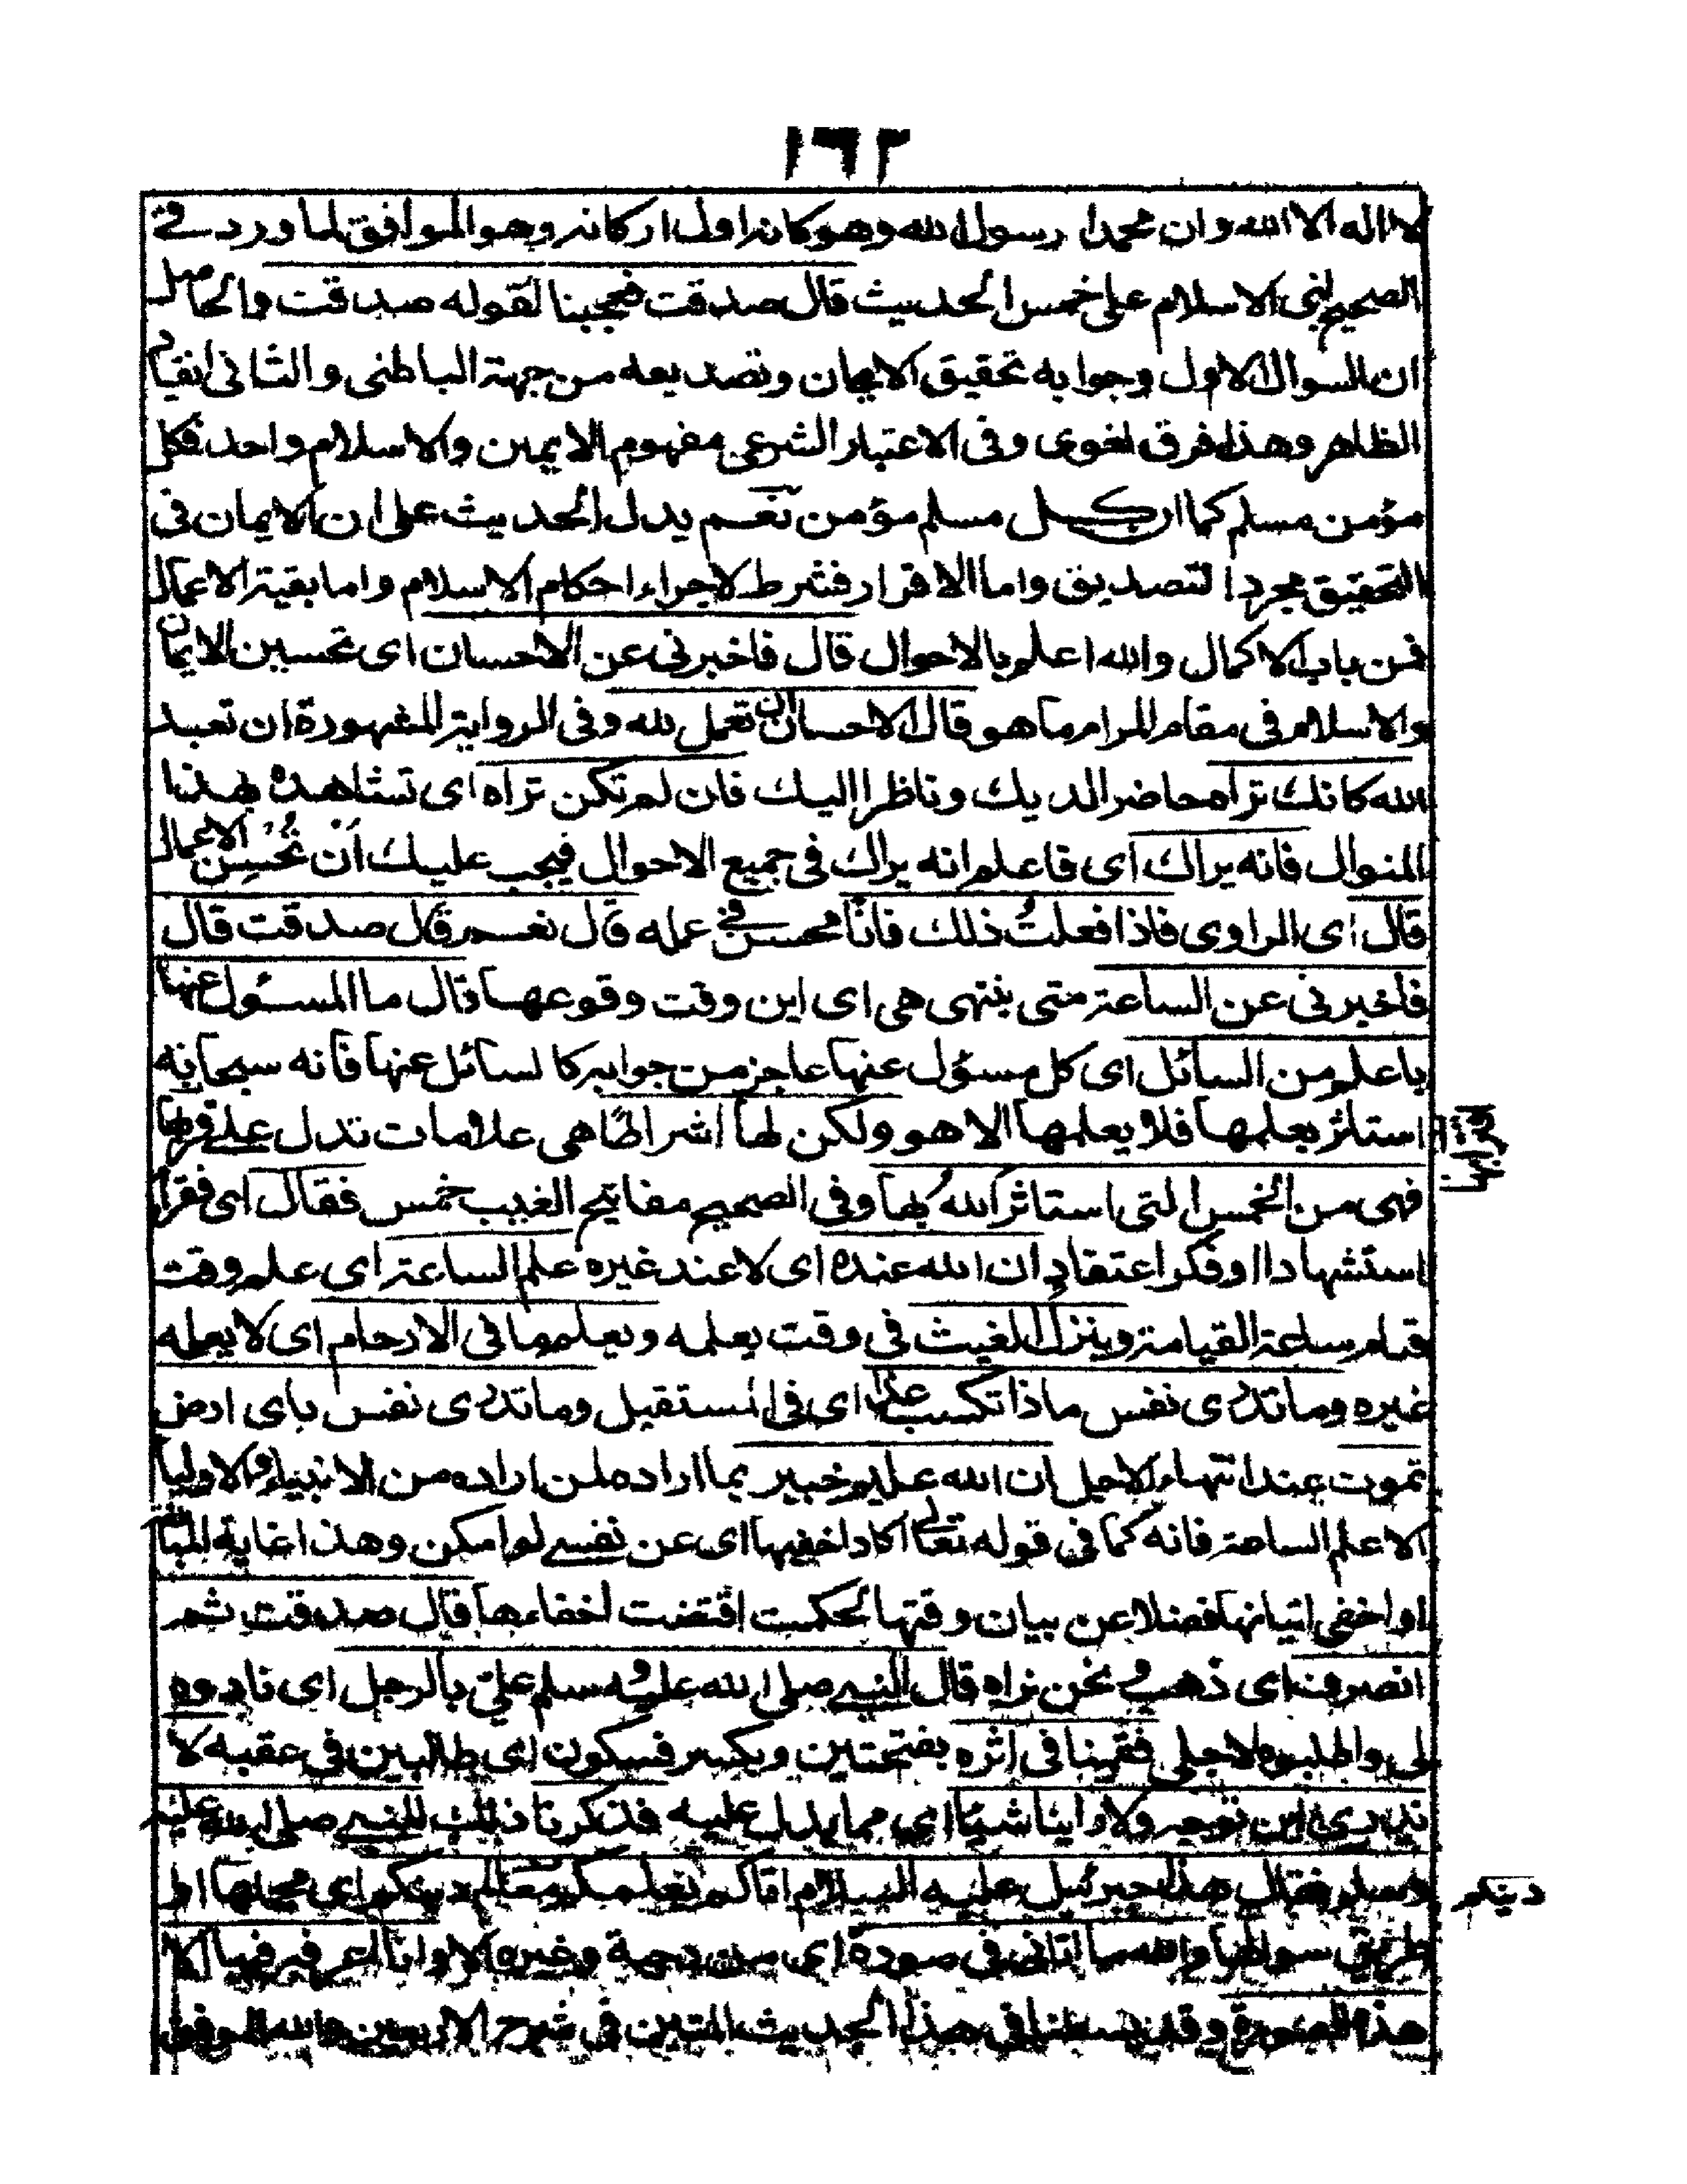 ١٦٢
لا اله الا الله وان محمدا رسول الله وهو كانه اول اركانه وهو الموافق لما ورد في
الصحيح بنى الاسلام على خمس الحديث قال صدقت فعجبنا لقوله صدقت والحاصل
ان السوال الاول وجوابه تحقيق الايمان وتصديعه من جهة الباطنى والثانى انقياد
الظاهر وهذا فرق لغوى وفى الاعتبار الشرعى مفهوم الايمين والاسلام واحد فكل
مؤمن مسلم كما ان كل مسلم مؤمن نعم يدل الحديث على ان الايمان فى
التحقيق مجرد التصديق واما الاقرار فشرط لاجراء احكام الاسلام واما بقية الاعمال
فمن باب الاكمال والله اعلم بالاحوال قال فاخبرنى عن الاحسان اى تحسين الايمان
والاسلام فى مقام المرام ما هو قال الاحسان ان تعمل لله وفى الرواية المشهورة ان تعبد
الله كانك تراه حاضرا لديك وناظرا اليك فان لم تكن تراه اى تشاهده بهذا
المنوال فانه يراك اى فاعلم انه يراك فى جميع الاحوال فيجب عليك اَنْ تُحْسِن الاعمال
قال اى الراوى فاذا فعلتُ ذلك فانا محسن في عمله قال نعم قال صدقت قال
فاخبرنى عن الساعة متى ينتهى هى اى اين وقت وقوعها قال ما المسئول عنها
باعلم من السائل اى كل مسؤل عنها عاجز من جوابه كالسائل عنها فانه سبحانه
استاثر بعلمها فلا يعلمها الا هو ولكن لها اشراطا هى علامات تدل على قربها
فهى من الخمس التى استاثر الله بها وفى الصحيح مفاتيح الغيب خمس فقال اى فقرأ
استشهادا او فكر اعتقاد ان الله عنده اى لا عند غيره علم الساعة اى علم وقت
قيام ساعة القيامة وينزل الغيث فى وقت يعلمه ويعلم ما فى الارحام اى لا يعلمه
غيره وما تدرى نفس ماذا تكسب غدا اى فى المستقبل وما تدرى نفس باى ارض
تموت عند انتهاء الاجل ان الله عليم خبير بما اراده لمن اراده من الانبياء والاوليا
الا علم الساعة فانه كما فى قوله تعالى اكاد اخفيها اى عن نفسى لو امكن وهذا غاية المبالغة
او اخفى اتيانها فضلا عن بيان وقتها لحكمت اقتضت اخفاءها قال صدقت ثم
انصرف اى ذهب ونحن نراه قال النبى صلى الله عليه وسلم علىّ بالرجل اى نادوه
لى واطلبوه لاجلى فقمنا فى اثره بفتحتين وبكسر فسكون اى طالبين فى عقبه لا
ندرى اين توجه ولا راينا شيئا اى مما يدل عليه فذكرنا ذلك للنبى صلى الله عليه
وسلم فقال هذا جبرئيل عليه السلام اتاكم يعلمكم معالم دينكم اى محلها او
دينكم
طريق سواطها والله ما اتانى فى صورة اى من دحية وغيره الا وانا اعرفه فيها الا
هذه الصورة وقد بسطنا فى هذا الحديث المتين فى شرح الاربعين والله الموفق